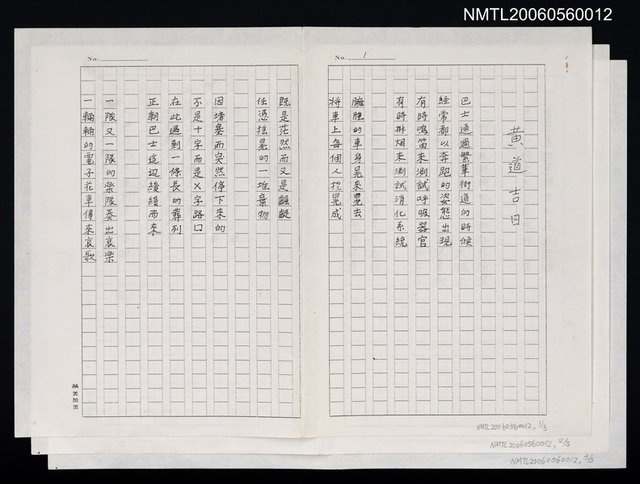 NMTL20060560012
No. 1
黃道吉日
巴士通過繁華街道的時候
經常都以奔跑的姿態出現
有時鳴笛來測試呼吸器官
有時排烟來測試消化系統
臃腫的車身晃來晃去
將車上每個人搖晃成
No.
既是茫然而又是齷齪
任憑搖晃的一堆棄物
因堵塞而突然停下來的
不是十字而是X字路口
在此遇到一條長的葬列
正朝巴士這邊緩緩而來
一隊又一隊的樂隊奏出哀樂
一輛輛的電子花車傳來哀歌
NMTL20060560012, 1/3
NMTL20060560012, 2/3
NMTL20060560012, 3/3